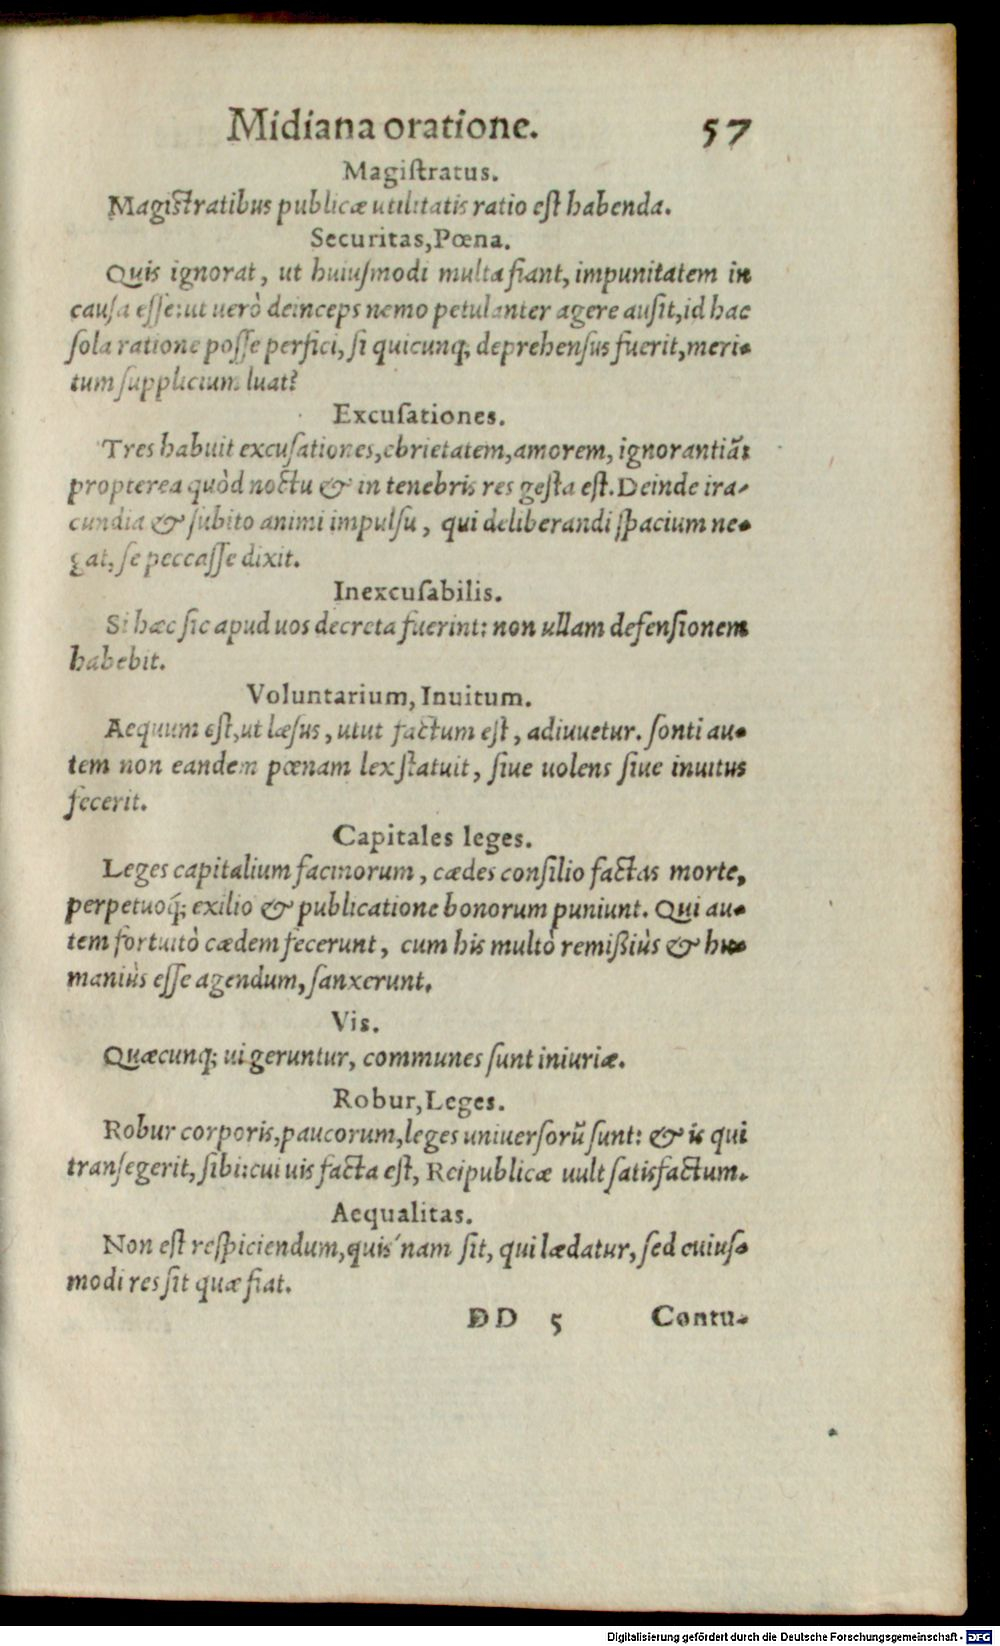 Midiana oratione. 57
Magiſtratus.
Magiſtratibus publicæ utilitatis ratio eſt habenda.
Securitas, Pœna.
Quis ignorat, ut huiuſmodi multa fiant, impunitatem in
cauſa eſſe: ut uerò deinceps nemo petulanter agere auſit, id hac
ſola ratione poſſe perfici, ſi quicunq; deprehenſus fuerit, meri-
tum ſupplicium luat?
Excuſationes.
Tres habuit excuſationes, ebrietatem, amorem, ignorantiã:
propterea quòd noctu & in tenebris res geſta eſt. Deinde ira-
cundia & ſubito animi impulſu, qui deliberandi ſpacium ne-
gat, ſe peccaſſe dixit.
Inexcuſabilis.
Si hæc ſic apud uos decreta fuerint: non ullam defenſionem
habebit.
Voluntarium, Inuitum.
Aequum eſt, ut læſus, utut factum eſt, adiuuetur. ſonti au-
tem non eandem pœnam lex ſtatuit, ſiue uolens ſiue inuitus
fecerit.
Capitales leges.
Leges capitalium facinorum, cædes conſilio factas morte,
perpetuoq́; exilio & publicatione bonorum puniunt. Qui au-
tem fortuitò cædem fecerunt, cum his multò remißiùs & hu-
maniùs eſſe agendum, ſanxerunt.
Vis.
Quæcunq; ui geruntur, communes ſunt iniuriæ.
Robur, Leges.
Robur corporis, paucorum, leges uniuerſorũ ſunt: & is qui
tranſegerit, ſibi: cui uis facta eſt, Reipublicæ uult ſatisfactum.
Aequalitas.
Non eſt reſpiciendum, quis'nam ſit, qui lædatur, ſed cuiuſ-
modi res ſit quæ fiat.
DD 5 Contu-
Digitalisierung gefördert durch die Deutsche Forschungsgemeinschaft - DFG